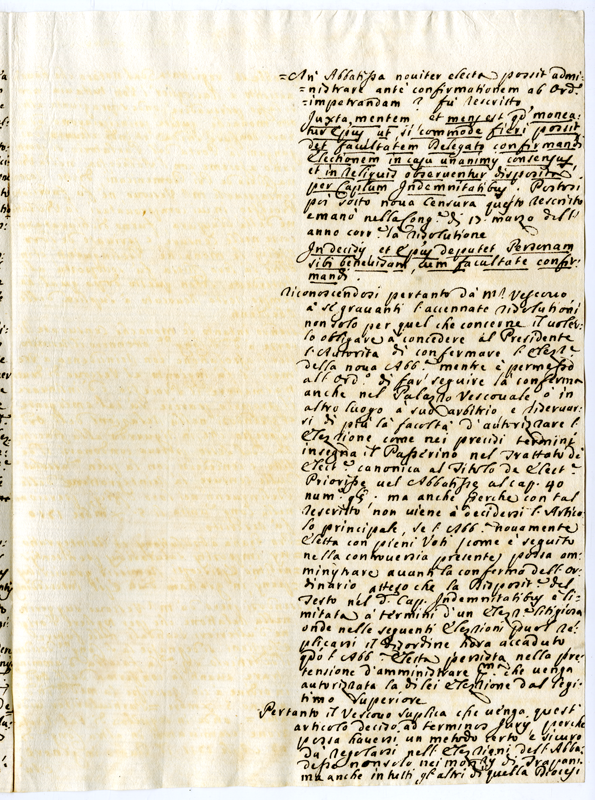 = An' Abbatissa noviter electa possit admi-
= nistrare ante confirmationem ab Ord.º
= impetrandam? fu' rescritto
Juxta mentem, et mens est, qd' monea-
tur Epus ut, si commode fieri possit
det facultatem Delegato confirmandi
Electionem in casu unanimy consensus
et in reliquis observentur disposita
per Caplum Indemnitatibus. Postosi
poi sotto nova Censura questo rescritto
emanò nella Cong.ne di 17. marzo dell'
anno corr.te la risolutione
In decisis, et Epus deputet Personam
sibi benevisam, cum facultate confir-
mandi.
Riconoscendosi pertanto da Mr. Vescovo
a se gravanti l'accennate risolutioni
non solo per quel che concerne il voler-
lo obligare a concedere al Presidente
l'Autorità di confermare l'Elez.ne
della nova Abb.a mentre è permesso
all'Ord.º di far' seguire la conferma
anche nel Palazzo Vescovale, o in
altro luogo a suo arbitrio, e riservar-
si di più la facoltà d'autorizzare l'
Elezzione come nei precisi termini
insegna il Passerino nel Trattato de
Elect.e canonica al Titolo de Elect.e
Priorisse vel Abbatisse al cap. 40
num. ma anche perche con tal
rescritto non viene a decidersi l'Artico-
lo principale, se l'Abb.a novamente
eletta con pieni Voti (come è seguito
nella controversia presente) possa am-
ministrare avanti la conferma dell'Or-
dinario, atteso che la Disposit.e del
Testo nel d.º Cap. Indemnitatibus è li-
mitata a termini d'un' Elez.ne litigiosa
onde nelle seguenti Elezzioni puol re-
plicarsi il disordine hora accaduto
qdo l'Abb.a Eletta persista nella pre-
tensione d'amministrare che venga
autorizata la di lei Elezzione dal legi-
timo superiore
Pertanto il Vescovo suplica che venga quest'
articolo deciso ad terminos Jury, perche
possa haversi un metodo certo e sicuro
da regolarsi nell'Elezzioni dell'Abba-
desse non solo nei mon.ry di Trapani
ma anche in tutti gl'altri di quella Diocesi